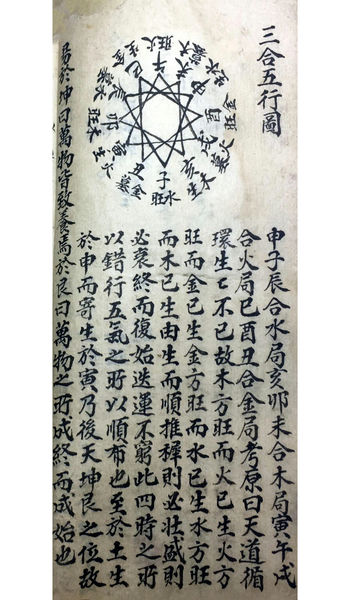 三合五行圖
午
旺火
未
申
酉
旺金
亥
生木
子
旺水
丑
墓金
寅
生火
卯
旺木
辰
巳
申子辰合水局亥卯未合木局寅午戌
合火局巳酉丑合金局考原曰天道循
環生〻不已故木方旺而火已生火方
旺而金已生金方旺而水已生水方旺
而木已生由生而順推穉則必壯盛則
必衰終而復始迭運不窮此四時之所
以錯行五氣之所以順布也至於土生
於申而寄生於寅乃後天坤艮之位故
易於坤曰萬物皆致養焉於艮曰萬物之所成終而成始也